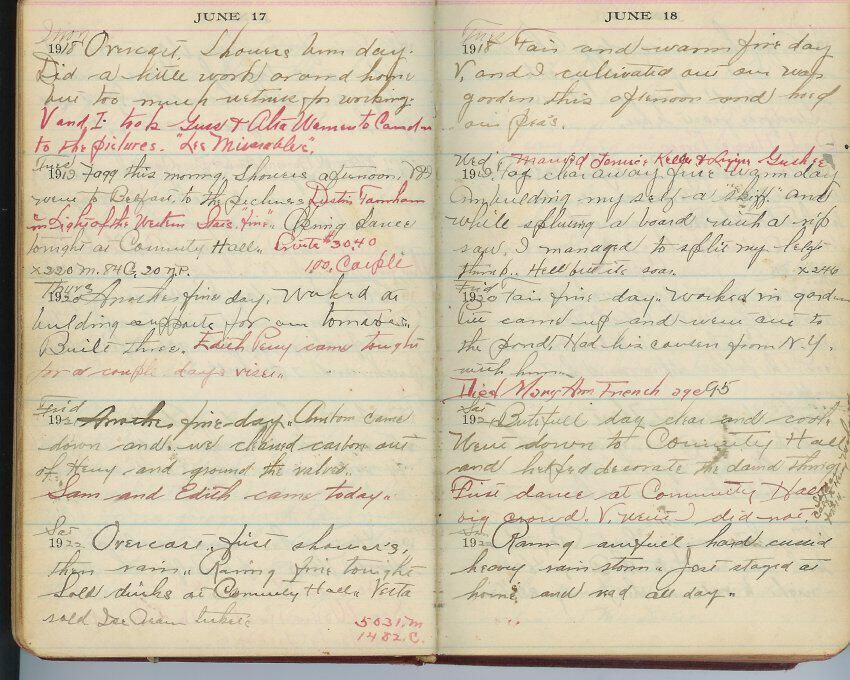 JUNE 17
Mon
1918 Overcast, Showers him day.
Did a little work around home
but too much wetness for working.
V and I took Guss & Alta Warren to Camden
to the pictures. "Les Miserables".
Tues
1919 Fogg this morning, Showers afternoon,
went to Belfast to the pictures Dustin Farnham
in Light of the Western Stars "fine". Opening Dance
tonight at Comunity Hall. Private # 30.40
x220 m. 84 C. 20 N.P. 100. Couple
Thurs
1920 Another fine day. Worked at
building supports for our tomatoes.
Built three. Edith Perry came tonight
for a couple days visit.
Frid
192 Another fine day. came
down and we cleaned carbon out
of Henry and ground the valves.
Sam and Edith came today.
Sat
1922 Overcast, first shower's,
then rain. Raining fine tonight
Sold drinks at Comunity Hall. Vesta
sold Ice Cream
5031. m
1482. C.
JUNE 18
Tues
1918 Fair and warm fine day
V. and I cultivated out our
garden this afternoon and hoed
our pea's.
Wed Married Kelle &
1919 Fog clear away fine warm day
Am building my self a "skiff" and
while splitting a board with a rip
saw, I managed to split my left
thumb. Hell but its soar. x246
Frid
1920 Fair fine day. Worked in garden
came up and went out to
the pond. Had his cousen from N.Y.
with him.
Died Mary Ann French age 95
Sat
192 Butifull day clear and cool.
Went down to Comunity Hall
and helped decorate the damd thing
First dance at Comunity Hall
big crowd. V. went I did not.
192 Raining awfull hard
heavy rain storm. Just stayed at
home and read all day.